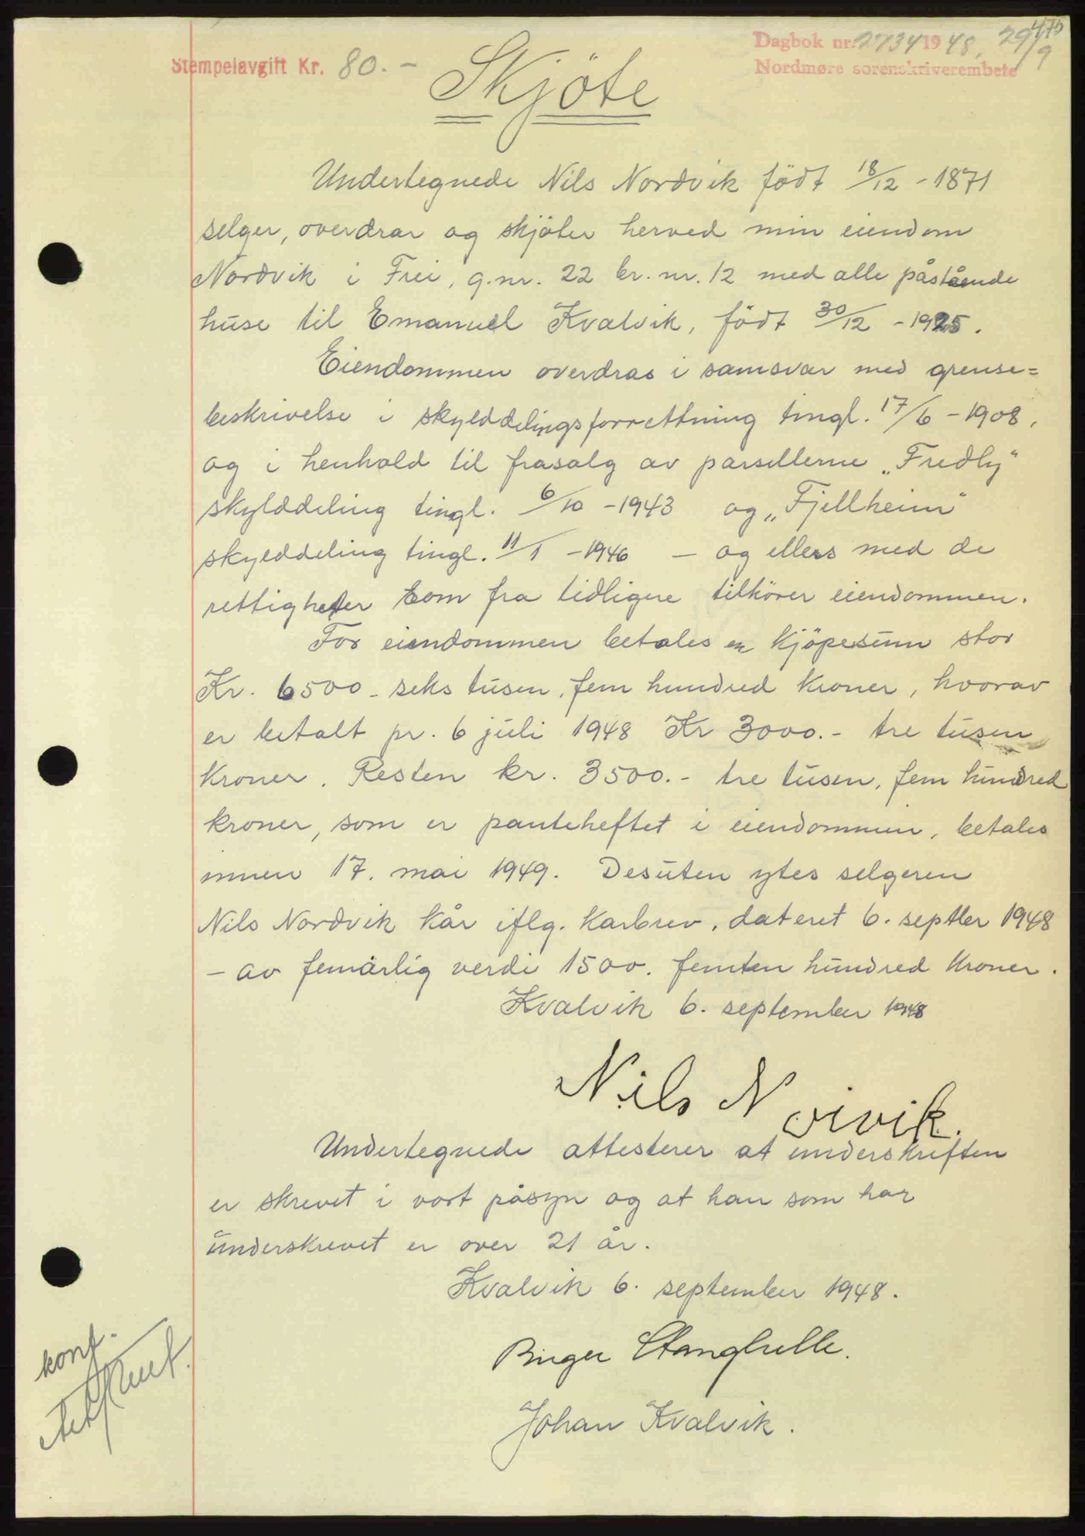 475
Dagbok nr. 2734 1948. 29/9
Stempelavgift Kr. 80.-
Nordmøre sorenskriverembete
Skjöte
Undertegnede Nils Nordvik född 18/12 - 1871
selger, overdrar og skjöter herved min eiendom
Nordvik i Frei, g.nr. 22 br.nr. 12 med alle påstående
huse til Emanuel Kvalvik, född 30/12 - 1925.
Eiendommen overdras i samsvar med grense=
beskrivelse i skylddelingsforrettning tingl. 17/6 - 1908,
og i henhold til frasalg av parsellerne „Fredly“
skylddeling tingl. 6/10 - 1943 og „Fjellheim“
skylddeling tingl. 11/1 - 1946 - og ellers med de
rettigheter som fra tidligere tilhörer eiendommen.
For eiendommen betales en kjöpesum stor
Kr. 6500 - seks tusen, fem hundred kroner, hvorav
er betalt pr. 6 juli 1948 Kr 3000.- tre tusen
kroner. Resten kr. 3500.- tre tusen, fem hundred
kroner, som er panteheftet i eiendommen, betales
innen 17. mai 1949. Desuten ytes selgeren
Nils Nordvik kår iflg. karbrev, dateret 6. septber 1948
- av femårlig verdi 1500. femten hundred kroner.
Kvalvik 6. september 1948
Nils Norvik.
Undertegnede attesterer at underskriften
er skrevet i vort påsyn og at han som har
underskrevet er over 21 år.
Kvalvik 6. september 1948.
Birger Stanghelle.
Johan Kvalvik.
konf.